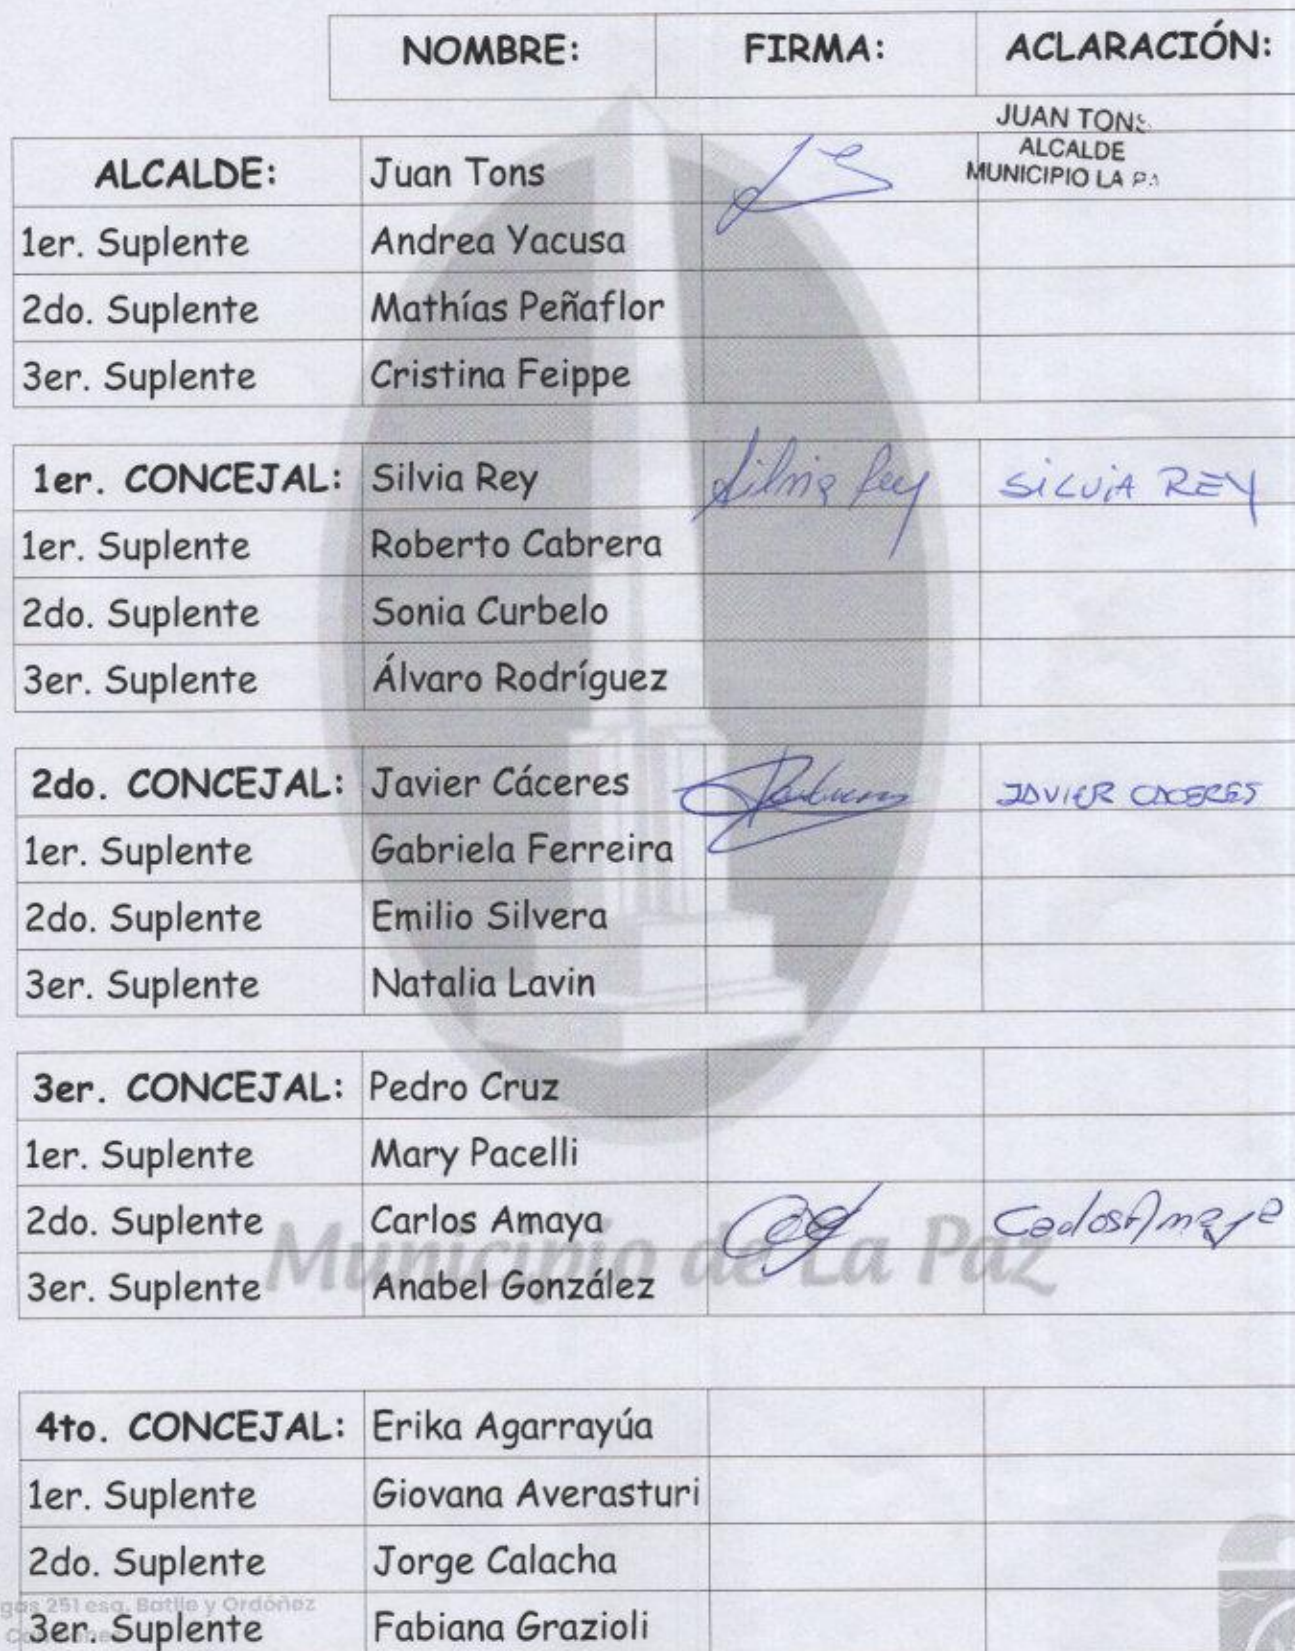 NOMBRE: FIRMA: ACLARACIÓN:
JUAN TONS
ALCALDE
MUNICIPIO LA PA
ALCALDE: Juan Tons
1er. Suplente Andrea Yacusa
2do. Suplente Mathías Peñaflor
3er. Suplente Cristina Feippe
1er. CONCEJAL: Silvia Rey Silvia Rey SILVIA REY
1er. Suplente Roberto Cabrera
2do. Suplente Sonia Curbelo
3er. Suplente Álvaro Rodríguez
2do. CONCEJAL: Javier Cáceres JAVIER CACERES
1er. Suplente Gabriela Ferreira
2do. Suplente Emilio Silvera
3er. Suplente Natalia Lavin
3er. CONCEJAL: Pedro Cruz
1er. Suplente Mary Pacelli
2do. Suplente Carlos Amaya Carlos Amaya
Municipio de La Paz
3er. Suplente Anabel González
4to. CONCEJAL: Erika Agarrayúa
1er. Suplente Giovana Averasturi
2do. Suplente Jorge Calacha
251 esq. Batlle y Ordóñez
3er. Suplente Fabiana Grazioli